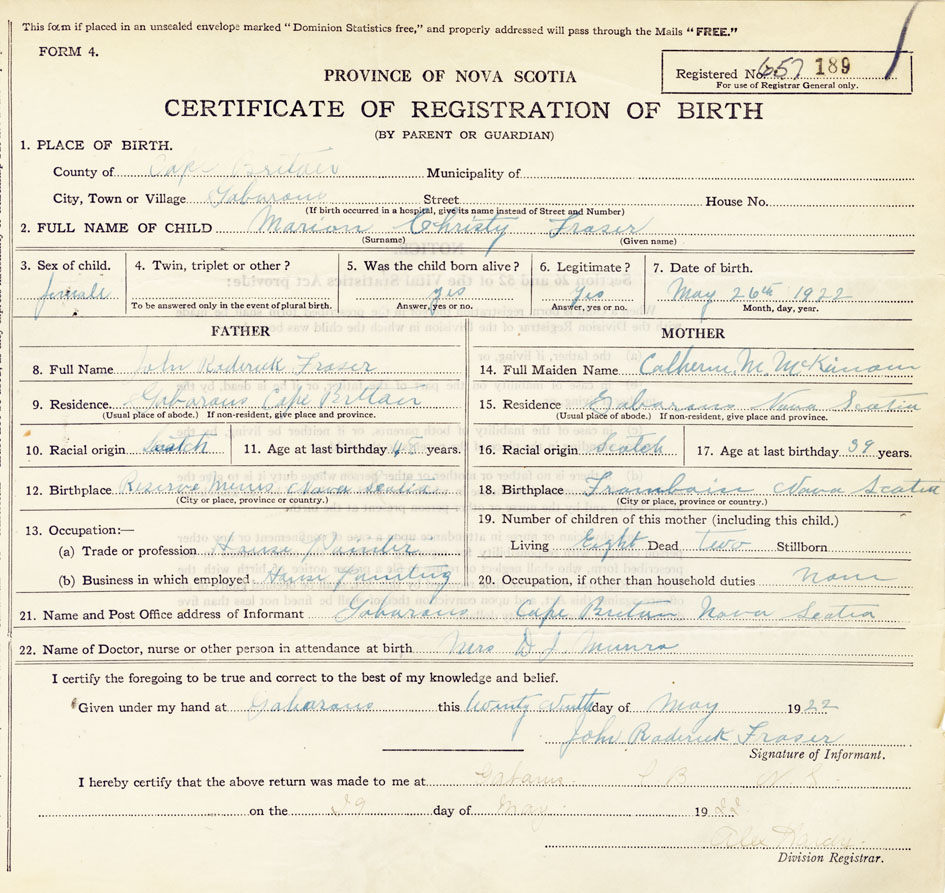 This form if placed in an unsealed envelope marked "Dominion Statistics free," and properly addressed will pass through the Mails "FREE."
FORM 4.
Registered No. 657 189
For use of Registrar General only.
PROVINCE OF NOVA SCOTIA
CERTIFICATE OF REGISTRATION OF BIRTH
(BY PARENT OR GUARDIAN)
1. PLACE OF BIRTH.
County of Cape Britain Municipality of
City, Town or Village Gabarous Street House No.
(If birth occurred in a hospital, give its name instead of Street and Number)
2. FULL NAME OF CHILD Marion Christy Fraser
(Surname) (Given name)
3. Sex of child. 4. Twin, triplet or other? 5. Was the child born alive? 6. Legitimate? 7. Date of birth.
female yes Yes May 26th 1922
To be answered only in the event of plural birth. Answer, yes or no. Answer, yes or no. Month, day, year.
FATHER MOTHER
8. Full Name John Roderick Fraser 14. Full Maiden Name Catherine M. McKinnon
9. Residence Gabarous Cape Brittain 15. Residence Gabarous Nova Scotia
(Usual place of abode.) If non-resident, give place and province. (Usual place of abode.) If non-resident, give place and province.
10. Racial origin Scotch 11. Age at last birthday 48 years. 16. Racial origin Scotch 17. Age at last birthday 39 years.
12. Birthplace Reserve Mines Nova Scotia 18. Birthplace Framboise Nova Scotia
(City or place, province or country.) (City or place, province or country.)
13. Occupation:— 19. Number of children of this mother (including this child.)
(a) Trade or profession House Painter Living Eight Dead Two Stillborn
(b) Business in which employed House Painting 20. Occupation, if other than household duties none
21. Name and Post Office address of Informant Gabarous Cape Breton Nova Scotia
22. Name of Doctor, nurse or other person in attendance at birth Mrs D J Munro
I certify the foregoing to be true and correct to the best of my knowledge and belief.
Given under my hand at Gabarous this twenty Ninth day of May 1922
John Roderick Fraser
Signature of Informant.
I hereby certify that the above return was made to me at Gabarus C B N S
on the 29 day of May 1922
Division Registrar.